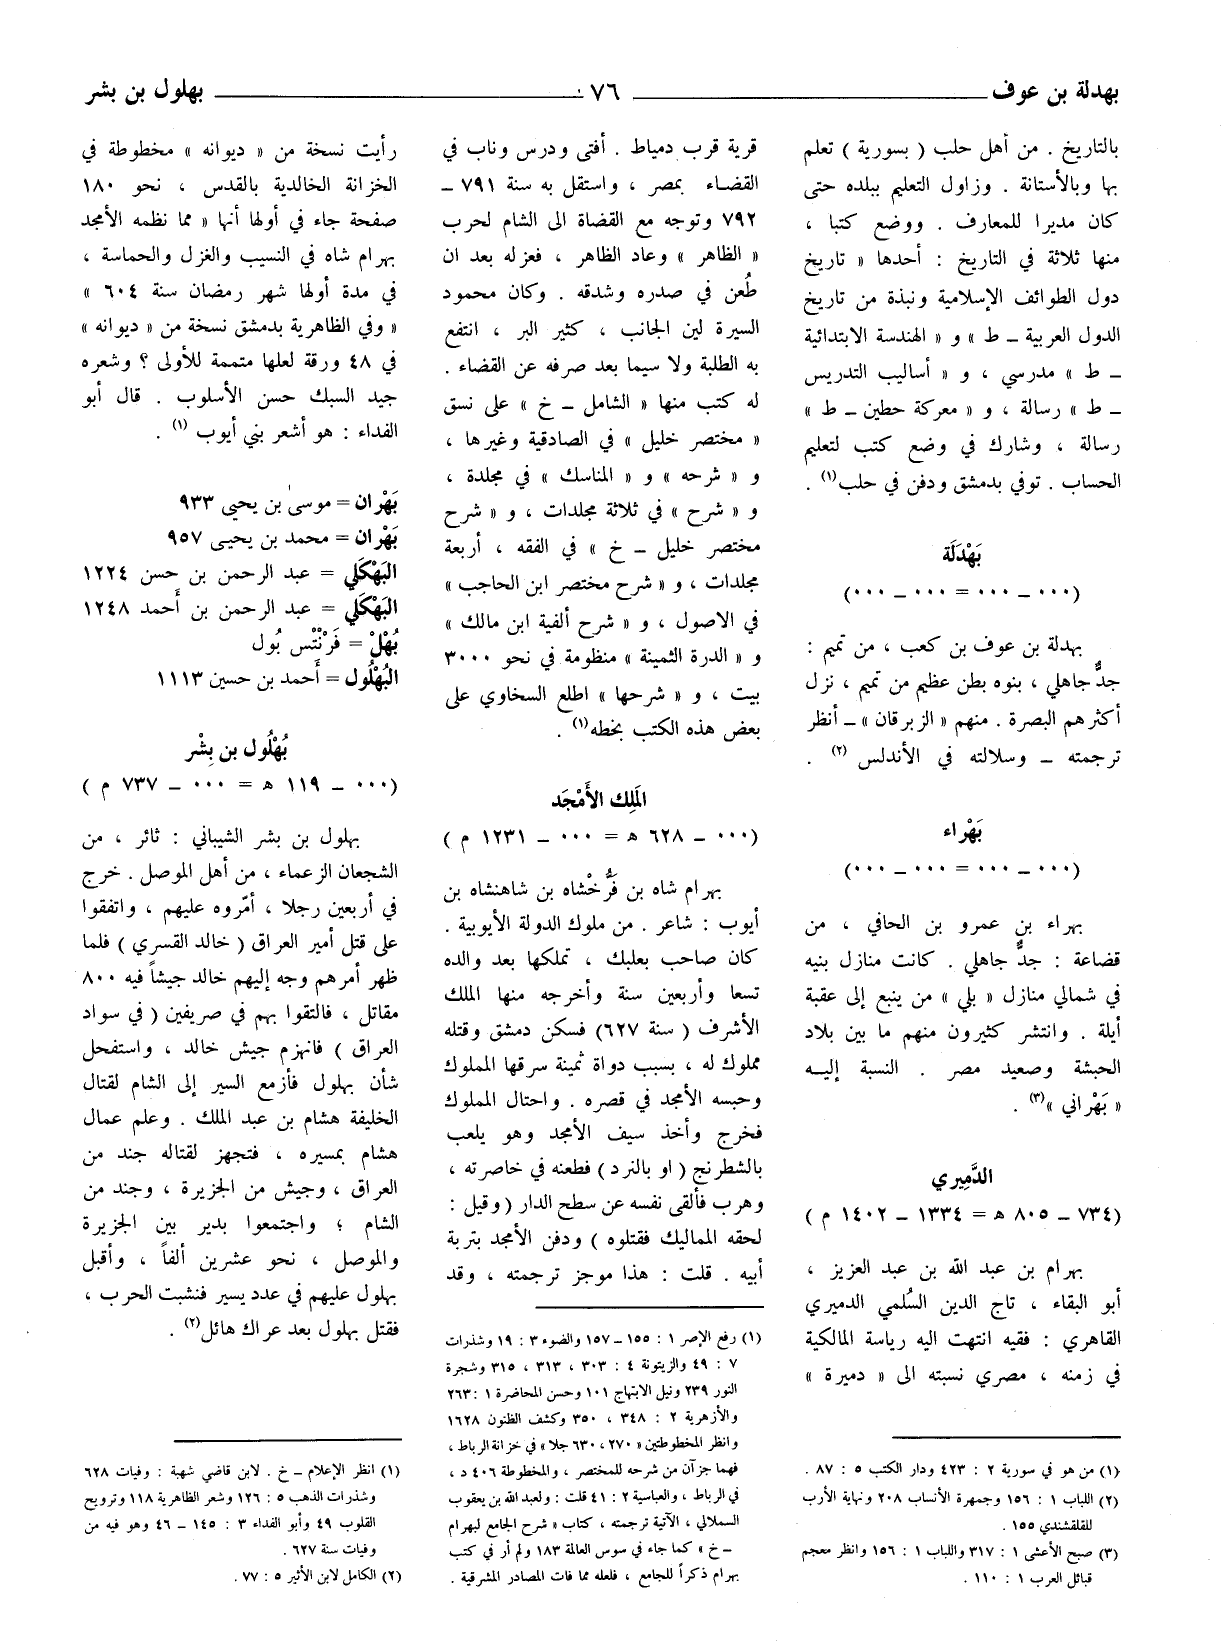 بهدلة بن عوف ٧٦ بهلول بن بشر
بالتاريخ . من أهل حلب ( بسورية ) تعلم
بها وبالأستانة . وزاول التعليم ببلده حتى
كان مديرا للمعارف . ووضع كتبا ،
منها ثلاثة في التاريخ : أحدها « تاريخ
دول الطوائف الإسلامية ونبذة من تاريخ
الدول العربية ــ ط » و « الهندسة الابتدائية
ــ ط » مدرسي ، و « أساليب التدريس
ــ ط » رسالة ، و « معركة حطين ــ ط »
رسالة ، وشارك في وضع كتب لتعليم
الحساب . توفي بدمشق ودفن في حلب(١) .
بَهْدَلَة
(٠٠٠ ــ ٠٠٠ = ٠٠٠ ــ ٠٠٠)
بهدلة بن عوف بن كعب ، من تميم :
جدٌّ جاهلي ، بنوه بطن عظيم من تميم ، نزل
أكثرهم البصرة . منهم « الزبرقان » ــ أنظر
ترجمته ــ وسلالته في الأندلس (٢) .
بَهْراء
(٠٠٠ ــ ٠٠٠ = ٠٠٠ ــ ٠٠٠)
بهراء بن عمرو بن الحافي ، من
قضاعة : جدٌّ جاهلي . كانت منازل بنيه
في شمالي منازل « بلي » من ينبع إلى عقبة
أيلة . وانتشر كثيرون منهم ما بين بلاد
الحبشة وصعيد مصر . النسبة إليـه
« بَهْراني »(٣) .
الدَّمِيري
(٧٣٤ ــ ٨٠٥ هـ = ١٣٣٤ ــ ١٤٠٢ م )
بهرام بن عبد الله بن عبد العزيز ،
أبو البقاء ، تاج الدين السُلمي الدميري
القاهري : فقيه انتهت اليه رياسة المالكية
في زمنه ، مصري نسبته الى « دميرة »
(١) من هو في سورية ٢ : ٤٢٣ ودار الكتب ٥ : ٨٧ .
(٢) اللباب ١ : ١٥٦ وجمهرة الأنساب ٢٠٨ ونهاية الأرب
للقلقشندي ١٥٥ .
(٣) صبح الأعشى ١ : ٣١٧ واللباب ١ : ١٥٦ وانظر معجم
قبائل العرب ١ : ١١٠ .
قرية قرب دمياط . أفتى ودرس وناب في
القضـاء بمصر ، واستقل به سنة ٧٩١ ــ
٧٩٢ وتوجه مع القضاة الى الشام لحرب
« الظاهر » وعاد الظاهر ، فعزله بعد ان
طُعن في صدره وشدقه . وكان محمود
السيرة لين الجانب ، كثير البر ، انتفع
به الطلبة ولا سيما بعد صرفه عن القضاء .
له كتب منها « الشامل ــ خ » على نسق
« مختصر خليل » في الصادقية وغيرها ،
و « شرحه » و « المناسك » في مجلدة ،
و « شرح » في ثلاثة مجلدات ، و « شرح
مختصر خليل ــ خ » في الفقه ، أربعة
مجلدات ، و « شرح مختصر ابن الحاجب »
في الاصول ، و « شرح ألفية ابن مالك »
و « الدرة الثمينة » منظومة في نحو ٣٠٠٠
بيت ، و « شرحها » اطلع السخاوي على
بعض هذه الكتب بخطه(١) .
المَلِك الأَمْجَد
(٠٠٠ ــ ٦٢٨ هـ = ٠٠٠ ــ ١٢٣١ م )
بهرام شاه بن فَرُّخْشاه بن شاهنشاه بن
أيوب : شاعر . من ملوك الدولة الأيوبية .
كان صاحب بعلبك ، تملكها بعد والده
تسعا وأربعين سنة وأخرجه منها الملك
الأشرف ( سنة ٦٢٧) فسكن دمشق وقتله
مملوك له ، بسبب دواة ثمينة سرقها المملوك
وحبسه الأمجد في قصره . واحتال المملوك
فخرج وأخذ سيف الأمجد وهو يلعب
بالشطرنج ( او بالنرد ) فطعنه في خاصرته ،
وهرب فألقى نفسه عن سطح الدار ( وقيل :
لحقه المماليك فقتلوه ) ودفن الأمجد بتربة
أبيه . قلت : هذا موجز ترجمته ، وقد
(١) رفع الإصر ١ : ١٥٥ ــ ١٥٧ والضوء ٣ : ١٩ وشذرات
٧ : ٤٩ والزيتونة ٤ : ٣٠٣ ، ٣١٣ ، ٣١٥ وشجرة
النور ٢٣٩ ونيل الابتهاج ١٠١ وحسن المحاضرة ١ : ٢٦٣
والأزهرية ٢ : ٣٤٨ ، ٣٥٠ وكشف الظنون ١٦٢٨
وانظر المخطوطتين « ٢٧٠ ، ٦٣٠ جلا » في خزانة الرباط ،
فهما جزآن من شرحه للمختصر ، والمخطوطة ٤٠٦ د ،
في الرباط ، والعباسية ٢ : ٤١ قلت : ولعبد الله بن يعقوب
السملالي ، الآتية ترجمته ، كتاب « شرح الجامع لبهرام
ــ خ » كما جاء في سوس العالة ١٨٣ ولم أر في كتب
بهرام ذكراً للجامع ، فلعله مما فات المصادر المشرقية .
رأيت نسخة من « ديوانه » مخطوطة في
الخزانة الخالدية بالقدس ، نحو ١٨٠
صفحة جاء في أولها أنها « مما نظمه الأمجد
بهرام شاه في النسيب والغزل والحماسة ،
في مدة أولها شهر رمضان سنة ٦٠٤ »
« وفي الظاهرية بدمشق نسخة من « ديوانه »
في ٤٨ ورقة لعلها متممة للأولى ؟ وشعره
جيد السبك حسن الأسلوب . قال أبو
الفداء : هو أشعر بني أيوب (١) .
بَهْران = موسىٰ بن يحيى ٩٣٣
بَهْران = محمد بن يحيى ٩٥٧
البَهْكَلي = عبد الرحمن بن حسن ١٢٢٤
البَهْكَلي = عبد الرحمن بن أَحمد ١٢٤٨
بُهْلْ = فَرَنْتْس بُول
البُهْلُول = أَحمد بن حسين ١١١٣
بُهْلُول بن بِشْر
(٠٠٠ ــ ١١٩ هـ = ٠٠٠ ــ ٧٣٧ م )
بهلول بن بشر الشيباني : ثائر ، من
الشجعان الزعماء ، من أهل الموصل . خرج
في أربعين رجلا ، أمّروه عليهم ، واتفقوا
على قتل أمير العراق ( خالد القسري ) فلما
ظهر أمرهم وجه إليهم خالد جيشاً فيه ٨٠٠
مقاتل ، فالتقوا بهم في صريفين ( في سواد
العراق ) فانهزم جيش خالد ، واستفحل
شأن بهلول فأزمع السير إلى الشام لقتال
الخليفة هشام بن عبد الملك . وعلم عمال
هشام بمسيره ، فتجهز لقتاله جند من
العراق ، وجيش من الجزيرة ، وجند من
الشام ؛ واجتمعوا بدير بين الجزيرة
والموصل ، نحو عشرين ألفاً ، وأقبل
بهلول عليهم في عدد يسير فنشبت الحرب ،
فقتل بهلول بعد عراك هائل(٢) .
(١) انظر الإعلام ــ خ . لابن قاضي شهبة : وفيات ٦٢٨
وشذرات الذهب ٥ : ١٢٦ وشعر الظاهرية ١١٨ وترويح
القلوب ٤٩ وأبو الفداء ٣ : ١٤٥ ــ ٤٦ وهو فيه من
وفيات سنة ٦٢٧ .
(٢) الكامل لابن الأثير ٥ : ٧٧ .